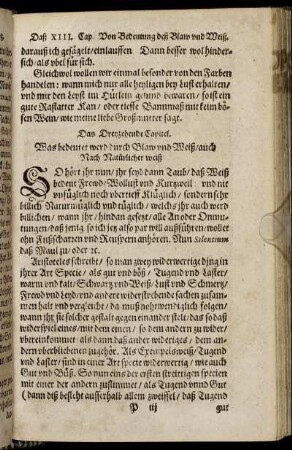 Daß XIII. Cap. Von Bedeutung deß Blaw vnd Weiß,
darauß ich gesägelt/einlauffen. Dann besser wol hinder-
sich/als vbel für sich.
Gleichwol wollen wir einmal besonder von den Farben
handelen: wann mich nur alle heyligen bey Lust erhalten/
vnd mir den Leyst im Hürlein gesund bewaren/ so ist ein
gute Rastatter Kan/ oder tieffe Bannmaß mit keim bö-
sen Wein/ wie meine liebe Großmutter sagt.
Das Dreyzehende Capitel.
Was bedeutet werd durch Blaw vnd Weiß/auch
Nach Natürlicher weiß
SO hört jhr nun/ jhr seyd dann Taub/ daß Weiß
bedeut Frewd/ Wollust vnd Kurzweil vnd nit
vnfüglich noch vbertieff Knüglich/ sondern sehr
billich Naturmüglich vnd rüglich/ welchs jhr auch werd
billichen/ wann jhr/ hindan gesetzt/ alle An oder Onmu-
tungen/ daß jenig so ich jez also par will außführen/ wollet
ohn Fußscharren vnd Reuspern anhören. Nun Silentium
daß Maul zu/ oder ꝛc.
Aristoteles schreibt/ so man zwey widerwertige ding in
jhrer Art Specie/ als gut vnd böß/ Tugend vnd Laster/
warm vnd kalt/ Schwarz vnd Weiß/ Lust vnd Schmerz/
Frewd vnd Leyd/ vnd andere widerstrebende sachen zusam-
men halt vnd vergleicht/ da muß nohtwendiglich folgen/
wann jhr sie solcher gestalt gegen einander stelt/ das so daß
widerspiel eines/ mit dem einen/ so dem andern zu wider/
vbereinkommet als dann daß ander widerigs/ dem an-
dern vberblichenen zugehör. Als Exempelsweiß/ Tugend
vnd Laster/ sind in einer Art specie widerwertig/ wie auch
Gut vnd Böß. So nun eins der ersten strittigen specien
mit einer der andern zustimmet/ als Tugend vnnd Gut
(dann diß besteht ausserhalb allem zweiffel/ daß Tugend
P iij gut